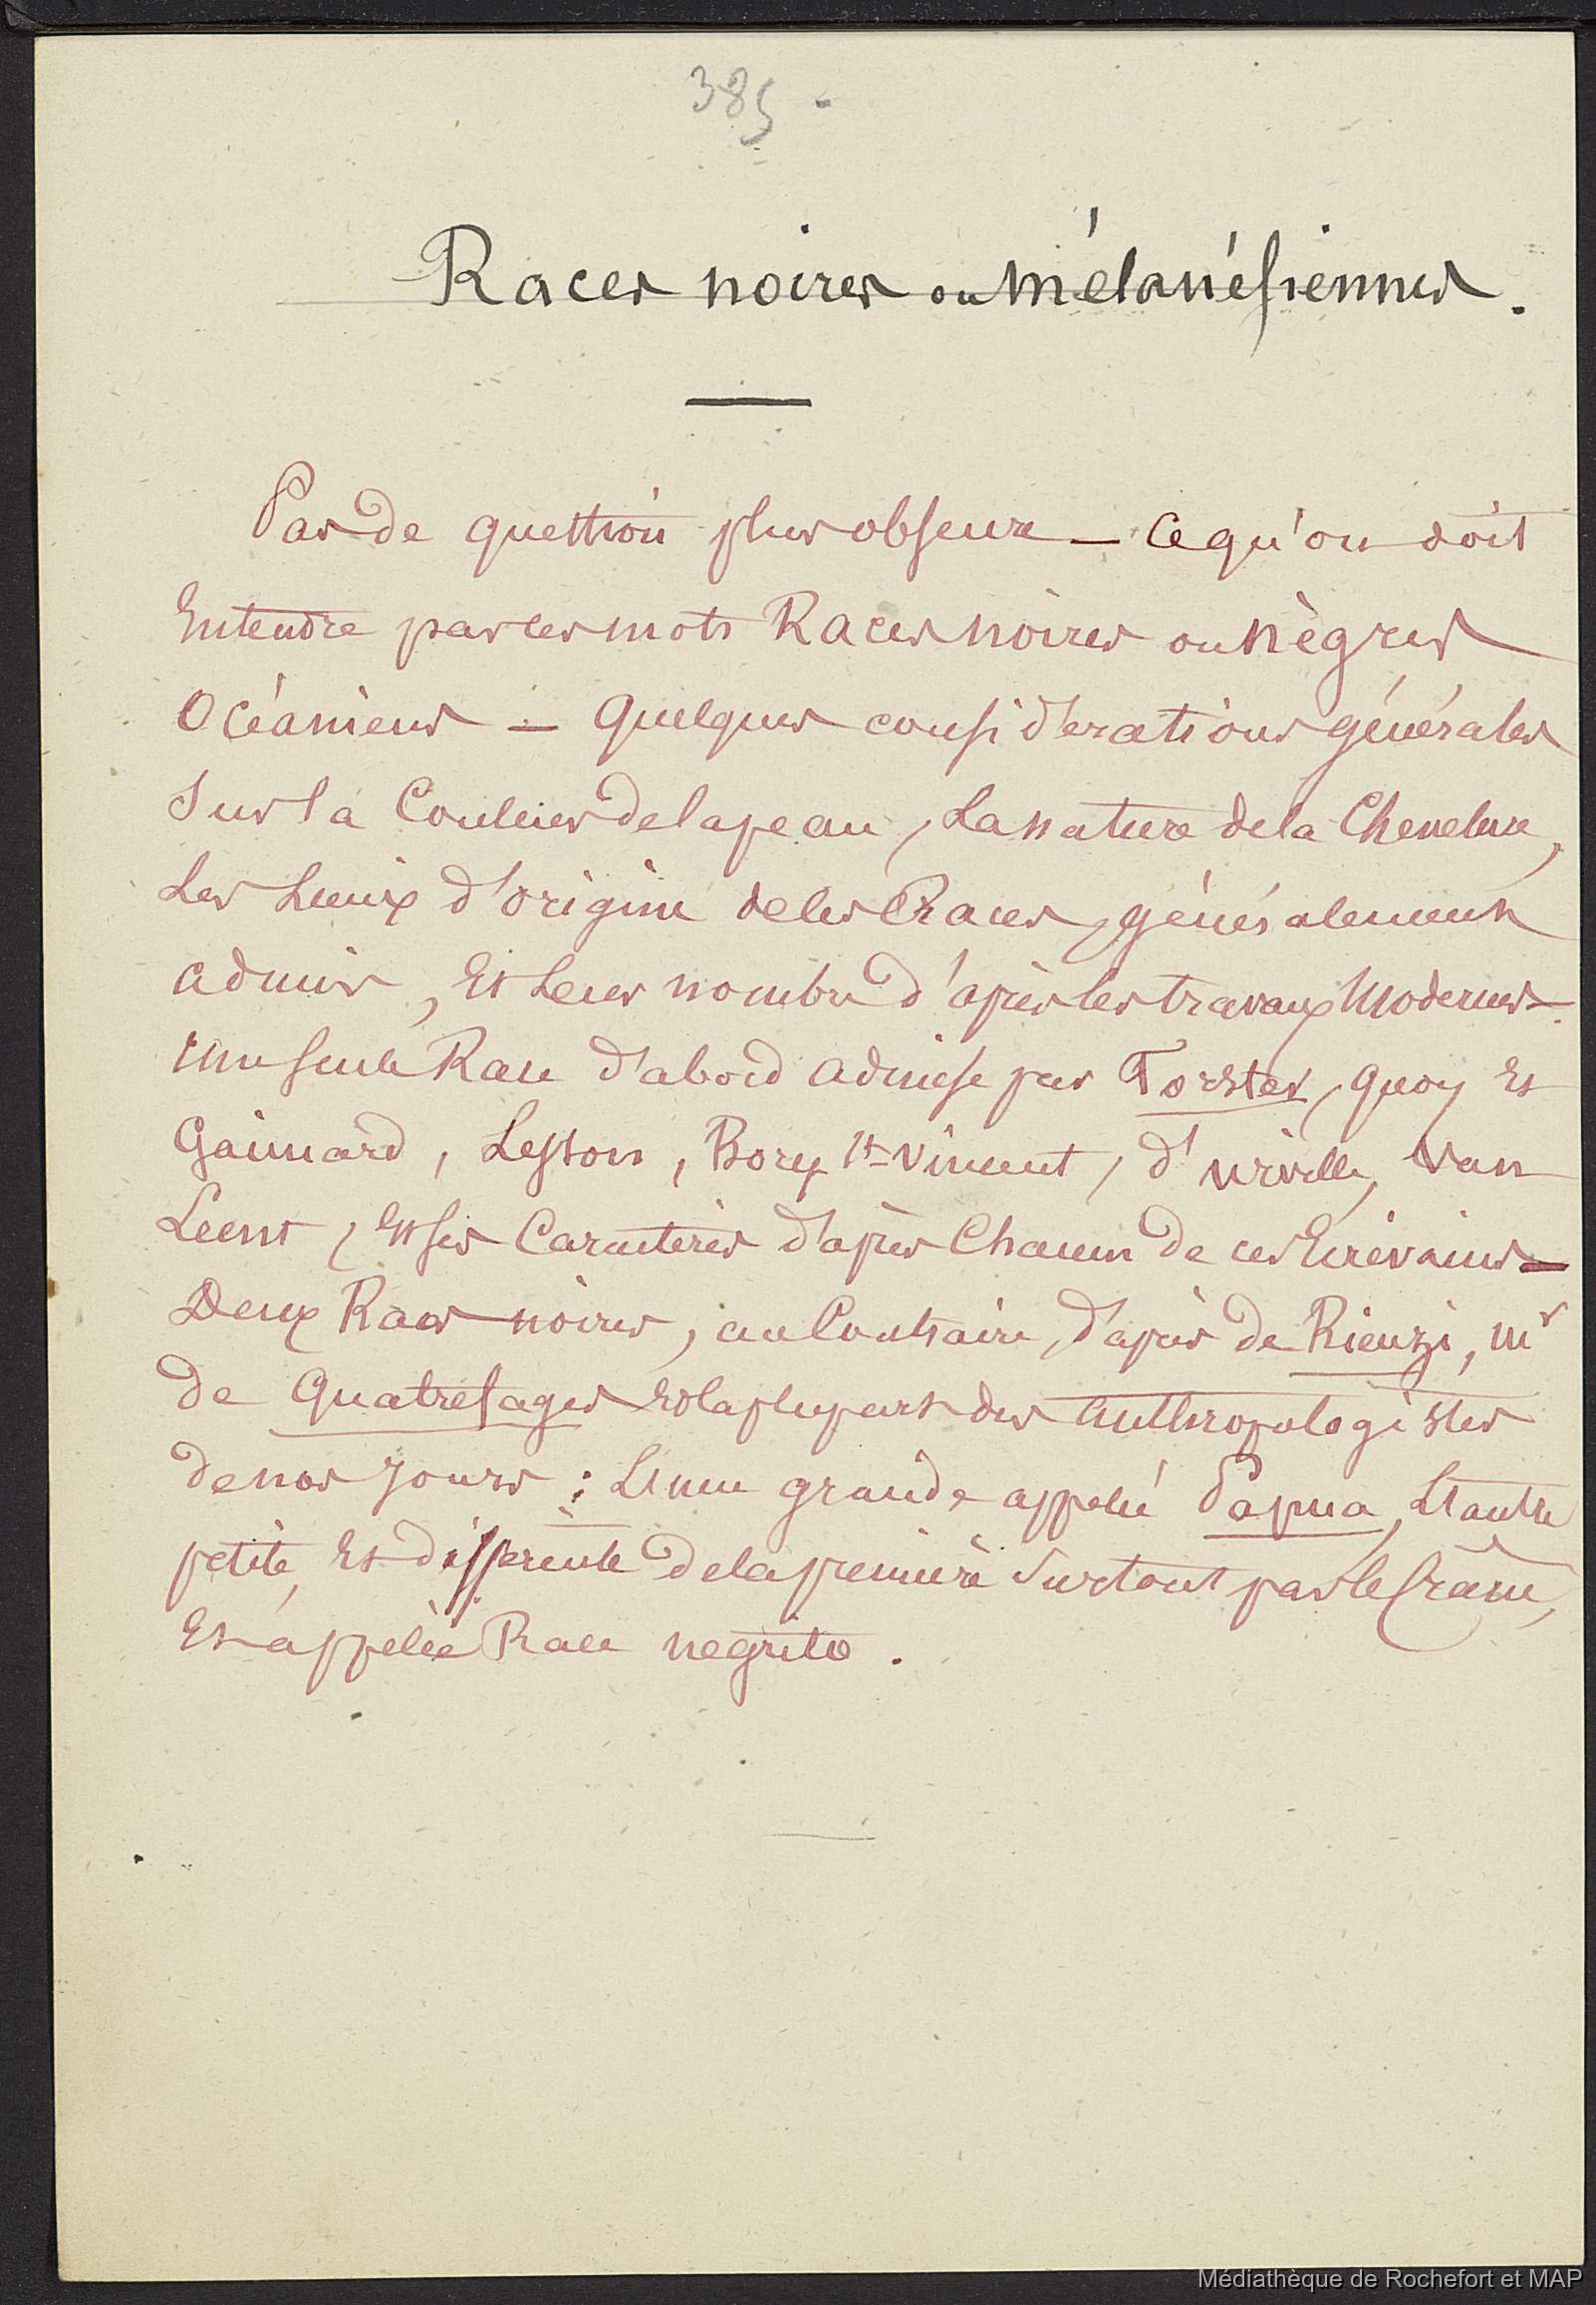 385
Races noires ou mélanésiennes.
Pas de question plus obscure — ce qu'on doit
Entendre par ces mots Races noires ou nègres
Océaniens — Quelques considérations générales
Sur la Couleur de la peau, La nature de la Chevelure,
Les Lieux d'origine de ces Races, généralement
admis, Et Leur nombre d'après les travaux Modernes —
Une seule Race d'abord admise par Forster, Quoy Et
Gaimard, Lesson, Bory St-Vincent, d'Urville, Van
Leent, Et ses Caractères d'après Chacun de ces Ecrivains —
Deux Races noires, au Contraire, d'après de Rienzi, Mr
de Quatrefages Et la plupart des Anthropologistes
de nos jours : L'une grande appelée Papua, L'autre
petite, Et différente de la première Surtout par le Crâne,
Est appelée Race negrito.
Médiathèque de Rochefort et MAP